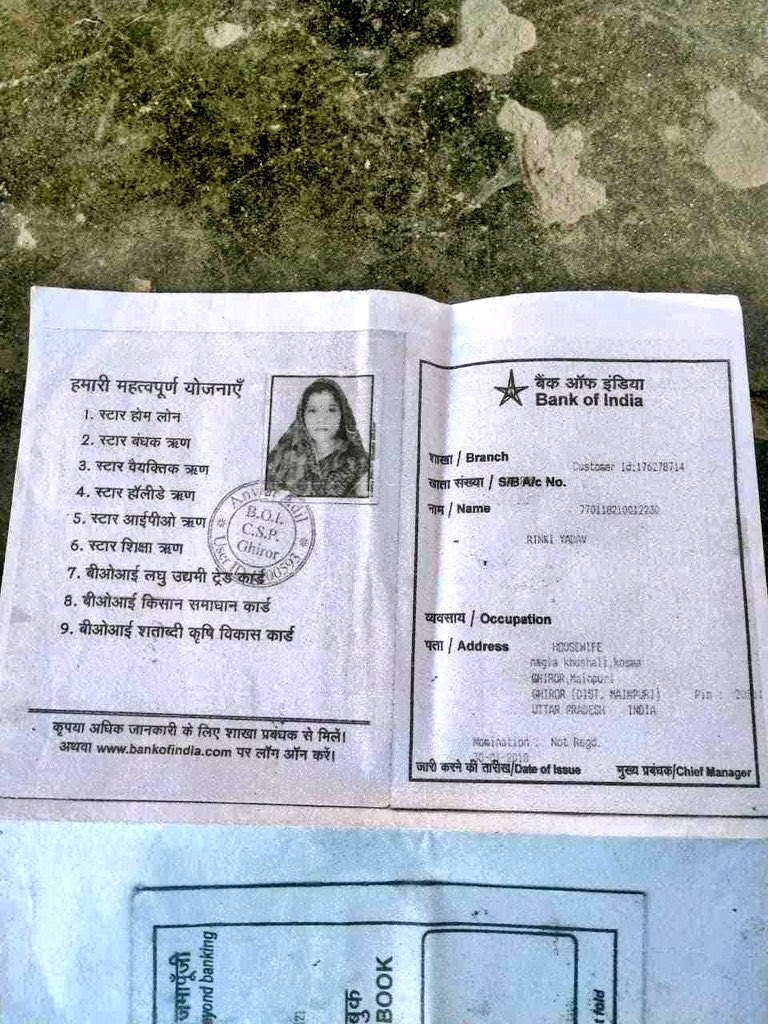 हमारी महत्वपूर्ण योजनाएँ
1. स्टार होम लोन
2. स्टार बंधक ऋण
3. स्टार वैयक्तिक ऋण
4. स्टार हॉलीडे ऋण
5. स्टार आईपीओ ऋण
6. स्टार शिक्षा ऋण
7. बीओआई लघु उद्यमी ट्रेड कार्ड
8. बीओआई किसान समाधान कार्ड
9. बीओआई शताब्दी कृषि विकास कार्ड
B.O.I.
C.S.P.
Ghiror
User
00593
कृपया अधिक जानकारी के लिए शाखा प्रबंधक से मिलें।
अथवा www.bankofindia.com पर लॉग ऑन करें।
बैंक ऑफ इंडिया
Bank of India
शाखा / Branch
Customer Id:176278714
खाता संख्या / S/B A/c No.
नाम / Name
770118210012230
RINKI YADAV
व्यवसाय / Occupation
पता / Address
HOUSEWIFE
nagla khushali,kosma
GHIROR,Mainpuri
GHIROR (DIST. MAINPURI) Pin :
UTTAR PRADESH INDIA
Nomination : Not Regd.
जारी करने की तारीख/Date of Issue
मुख्य प्रबंधक/Chief Manager
जमापूँजी
beyond banking
बुक
BOOK
fold